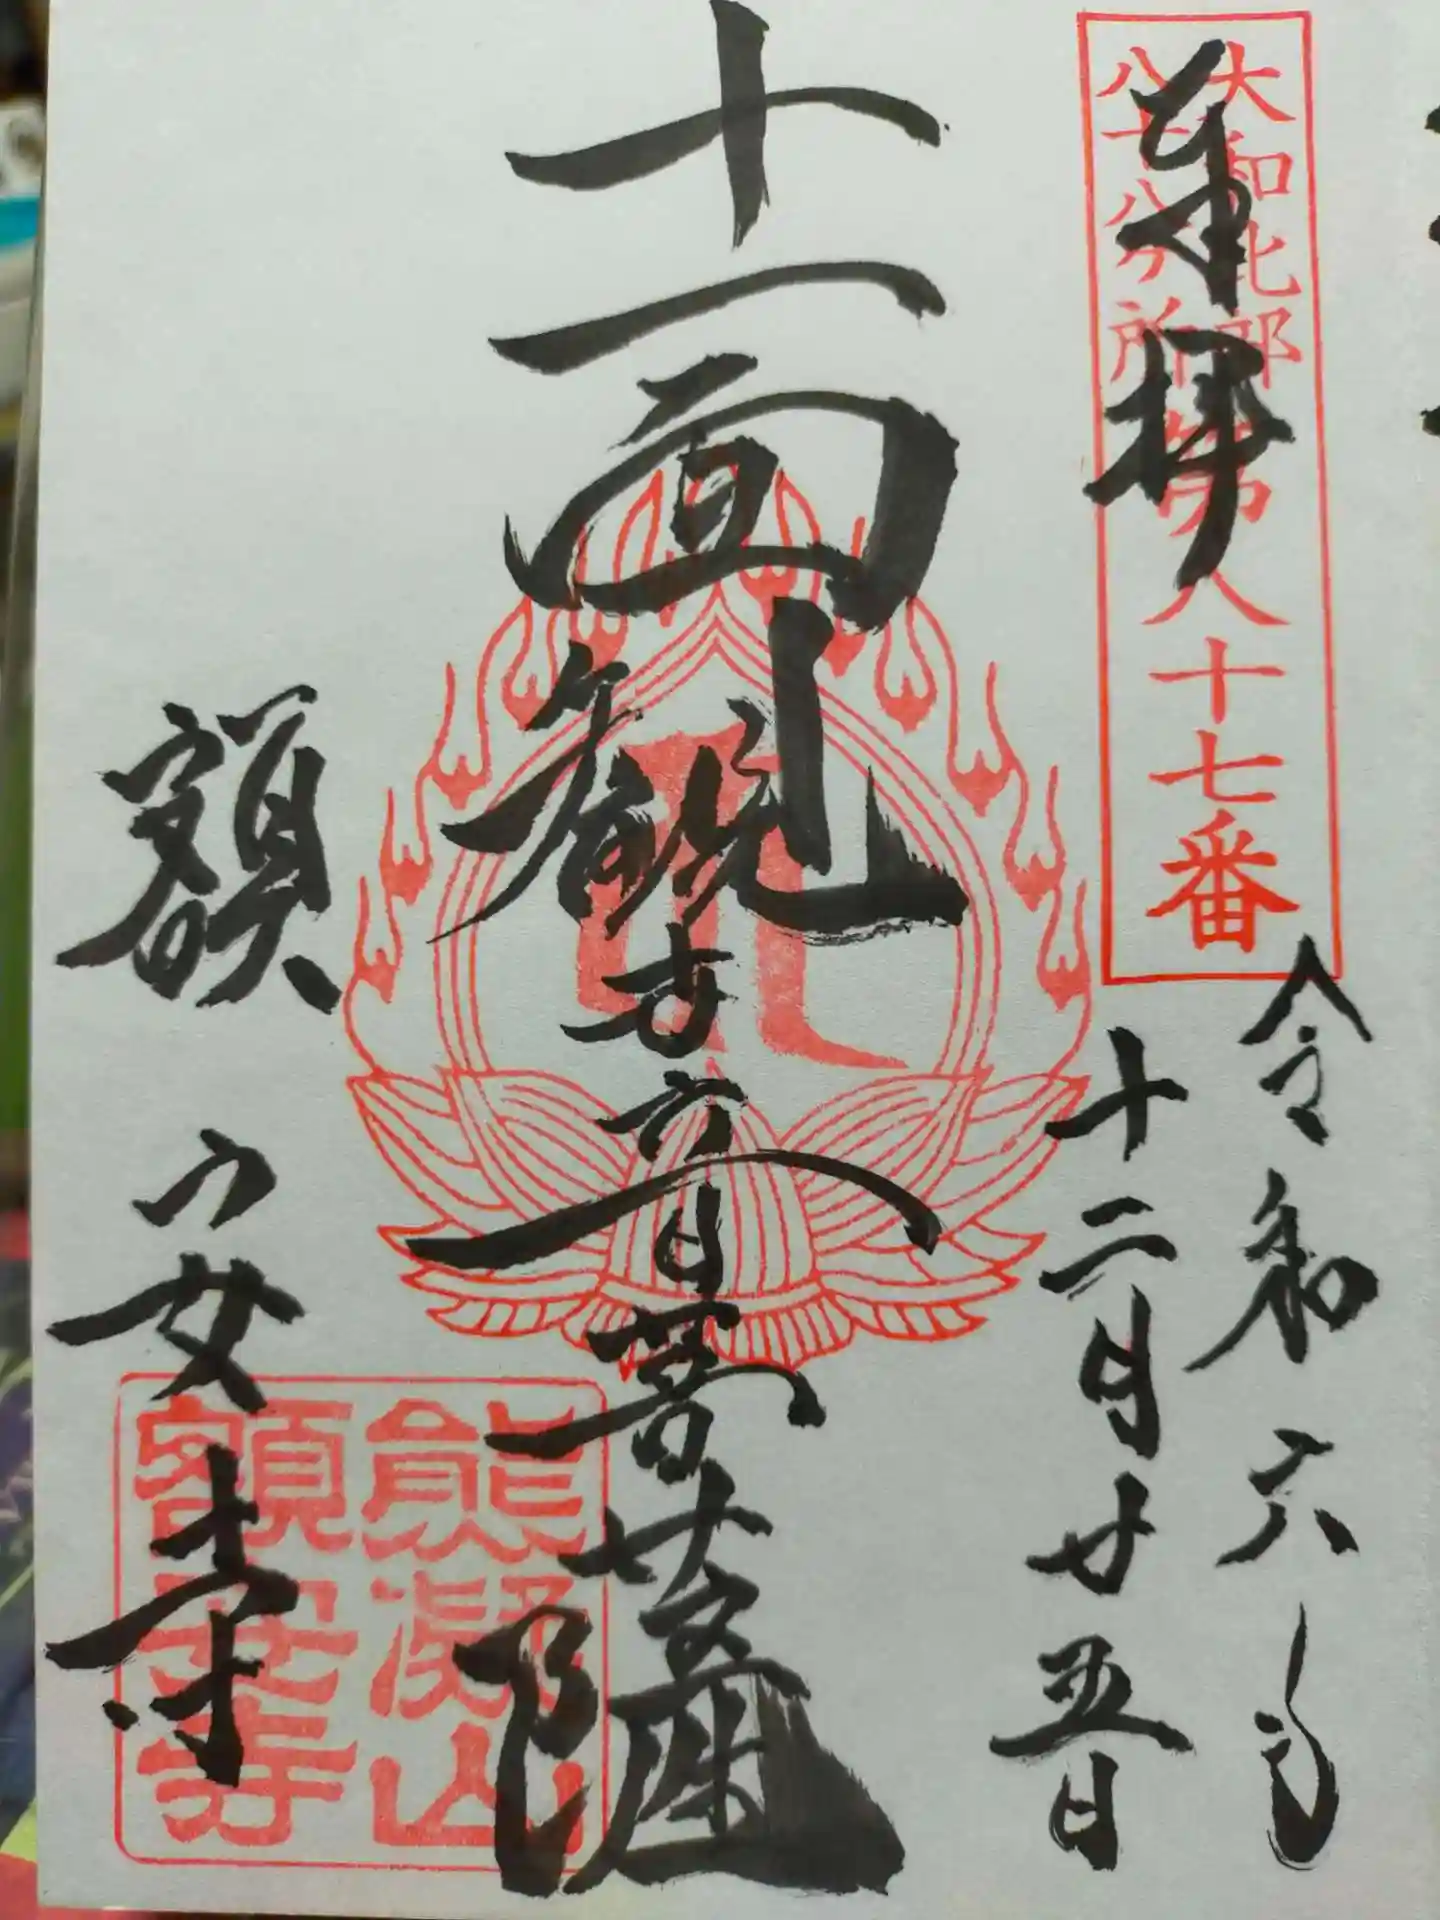 大和北部
八十八ヶ所
第八十七番
奉拝
令和六年
十二月廿五日
十一面観世音菩薩
額安寺
熊凝山
額安寺